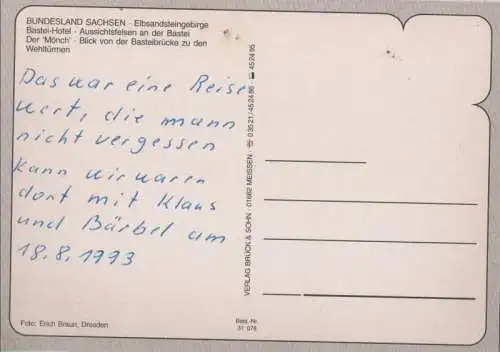 BUNDESLAND SACHSEN - Elbsandsteingebirge
Bastei-Hotel - Aussichtsfelsen an der Bastei
Der 'Mönch' - Blick von der Basteibrücke zu den
Wehltürmen
Das war eine Reise
wert, die mann
nicht vergessen
kann wir waren
dort mit Klaus
und Bärbel am
18.8.1993
VERLAG BRÜCK & SOHN · 01662 MEISSEN · ☏ 0 35 21 / 45 24 86 · 45 24 95
Foto: Erich Braun, Dresden
Best.-Nr.
31 078